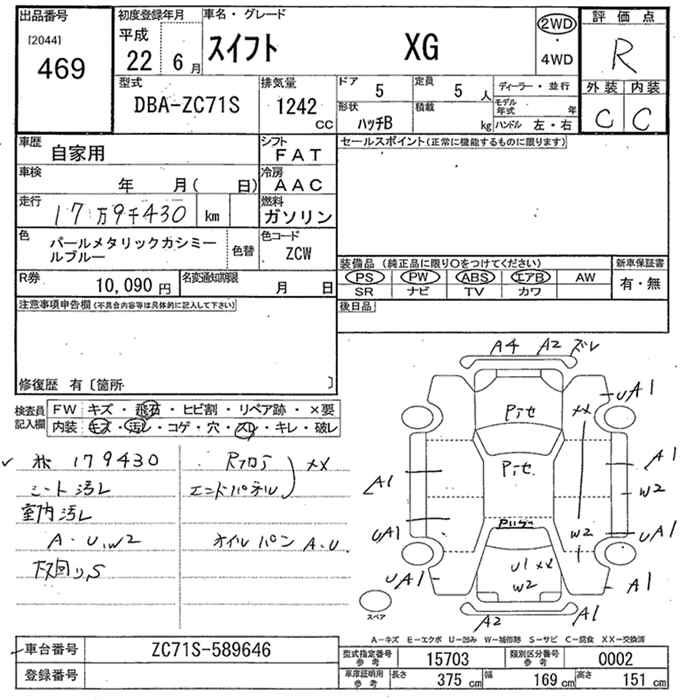 出品番号
[2044]
469
初度登録年月
平成
22 6月
車名・グレード
スイフト XG
2WD
・
4WD
評価点
R
外装 内装
C C
型式
DBA-ZC71S
排気量
1242
CC
ドア
5
定員
5人
形状
ハッチB
積載
kg
ディーラー・並行
モデル年式 年
ハンドル 左・右
車歴
自家用
シフト
FAT
車検
年 月( 日)
冷房
AAC
走行
17万9千430 km
燃料
ガソリン
色
パールメタリックカシミー
ルブルー
色替
色コード
ZCW
R券
10,090円
名変通知期限
月 日
セールスポイント(正常に機能するものに限ります)
装備品 (純正品に限り○をつけてください)
PS PW ABS エアB AW
SR ナビ TV カワ
新車保証書
有・無
後日品
注意事項申告欄(不具合内容等は具体的に記入して下さい)
修復歴 有〔箇所 〕
検査員
記入欄
FW キズ・飛石・ヒビ割・リペア跡・×要
内装 キズ・汚レ・コゲ・穴・スレ・キレ・破レ
179430
シート汚レ
室内汚レ
A・U.W2
下回り,S
Rフロア
エンドパネル
XX
オイルパン A.U.
A4 A2 ズレ
UA1
XX
Pイセ
Pイセ
A1
W2
A1
UA1
UA1
W2
U1 XX
W2
UA1
A1
A2
A1
スペア
A−キズ E−エクボ U−凹み W−補修跡 S−サビ C−腐食 XX−交換済
車台番号
ZC71S-589646
登録番号
型式指定番号
参考
15703
類別区分番号
参考
0002
車庫証明用
参考
長さ
375 cm
幅
169 cm
高さ
151 cm